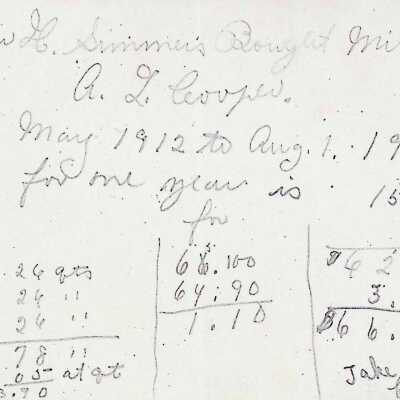 H. Simmers Bought Mi
A. L. Cooper.
May 1912 to Aug. 1. 19
for one year is 15
for
26 qts
26 "
26 "
78 "
05 at qt
3.90
66.100
64.90
1.10
$62
3.
$66.
Jake